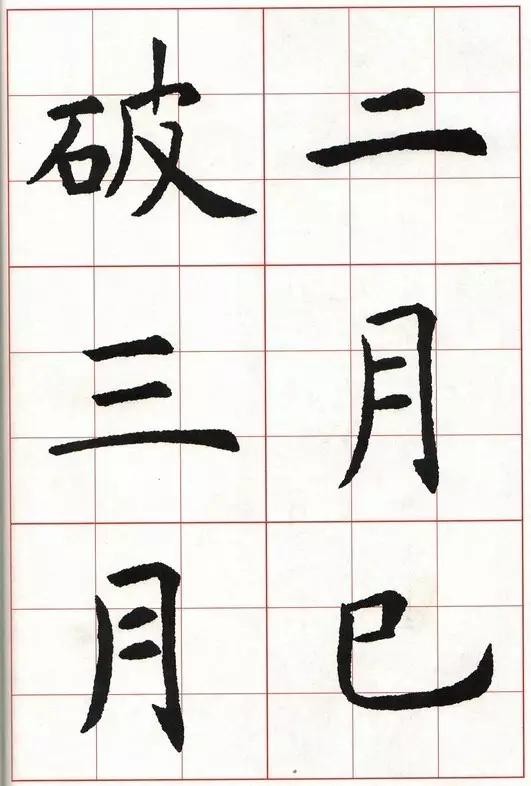 二月已
破三月